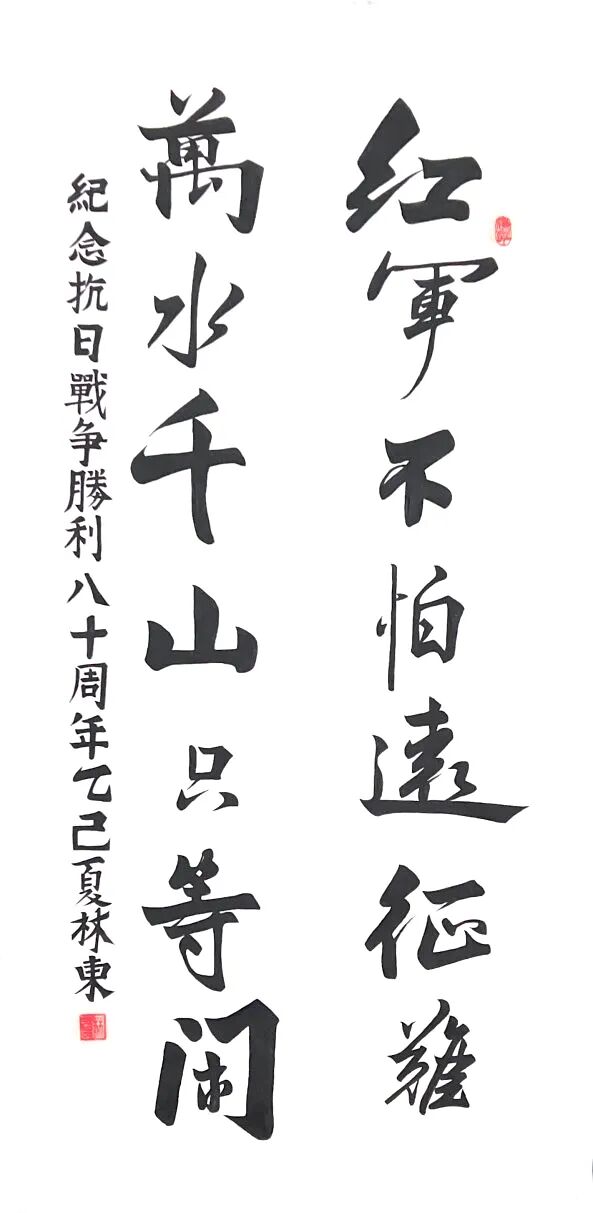 红軍不怕遠征難
萬水千山只等闲
紀念抗日戰争勝利八十周年乙巳夏林東